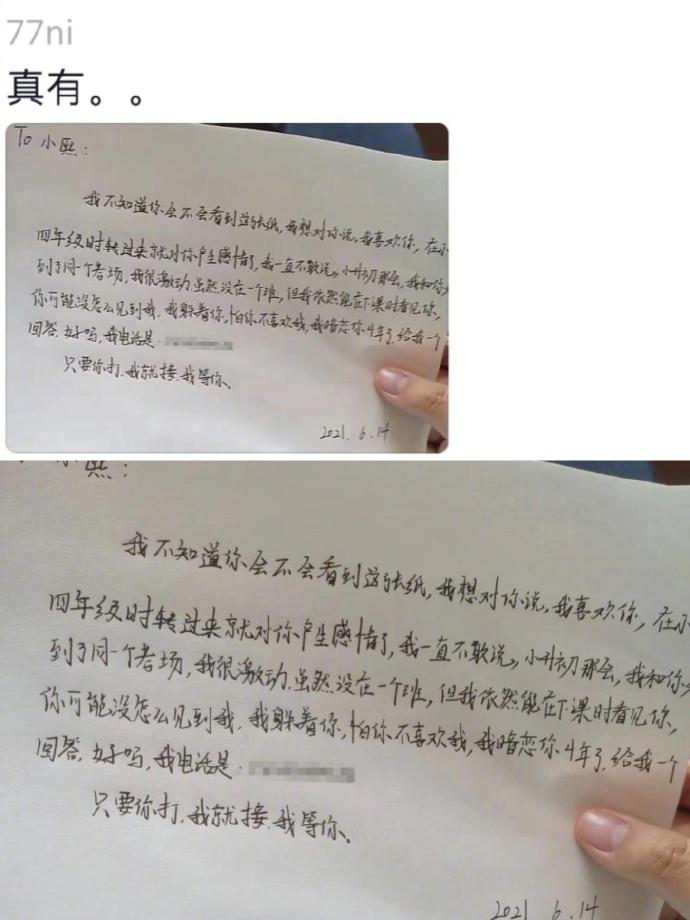 77ni
真有。。
To 小熙:
我不知道你会不会看到这张纸,我想对你说,我喜欢你,在小
四年级时转过来就对你产生感情了,我一直不敢说,小升初那会,我和你
到了同一个考场,我很激动.虽然没在一个班,但我依然能在下课时看见你,
你可能没怎么见到我,我躲着你,怕你不喜欢我,我暗恋你4年了,给我一个
回答.好吗,我电话是.
只要你打.我就接.我等你、
2021.6.14
小熙:
我不知道你会不会看到这张纸,我想对你说,我喜欢你,在
四年级时转过来就对你产生感情了,我一直不敢说,小升初那会,我和你
到了同一个考场,我很激动.虽然没在一个班,但我依然能在下课时看见你,
你可能没怎么见到我,我躲着你,怕你不喜欢我,我暗恋你4年了,给我一个
回答.好吗,我电话是.
只要你打.我就接.我等你、
2021.6.14